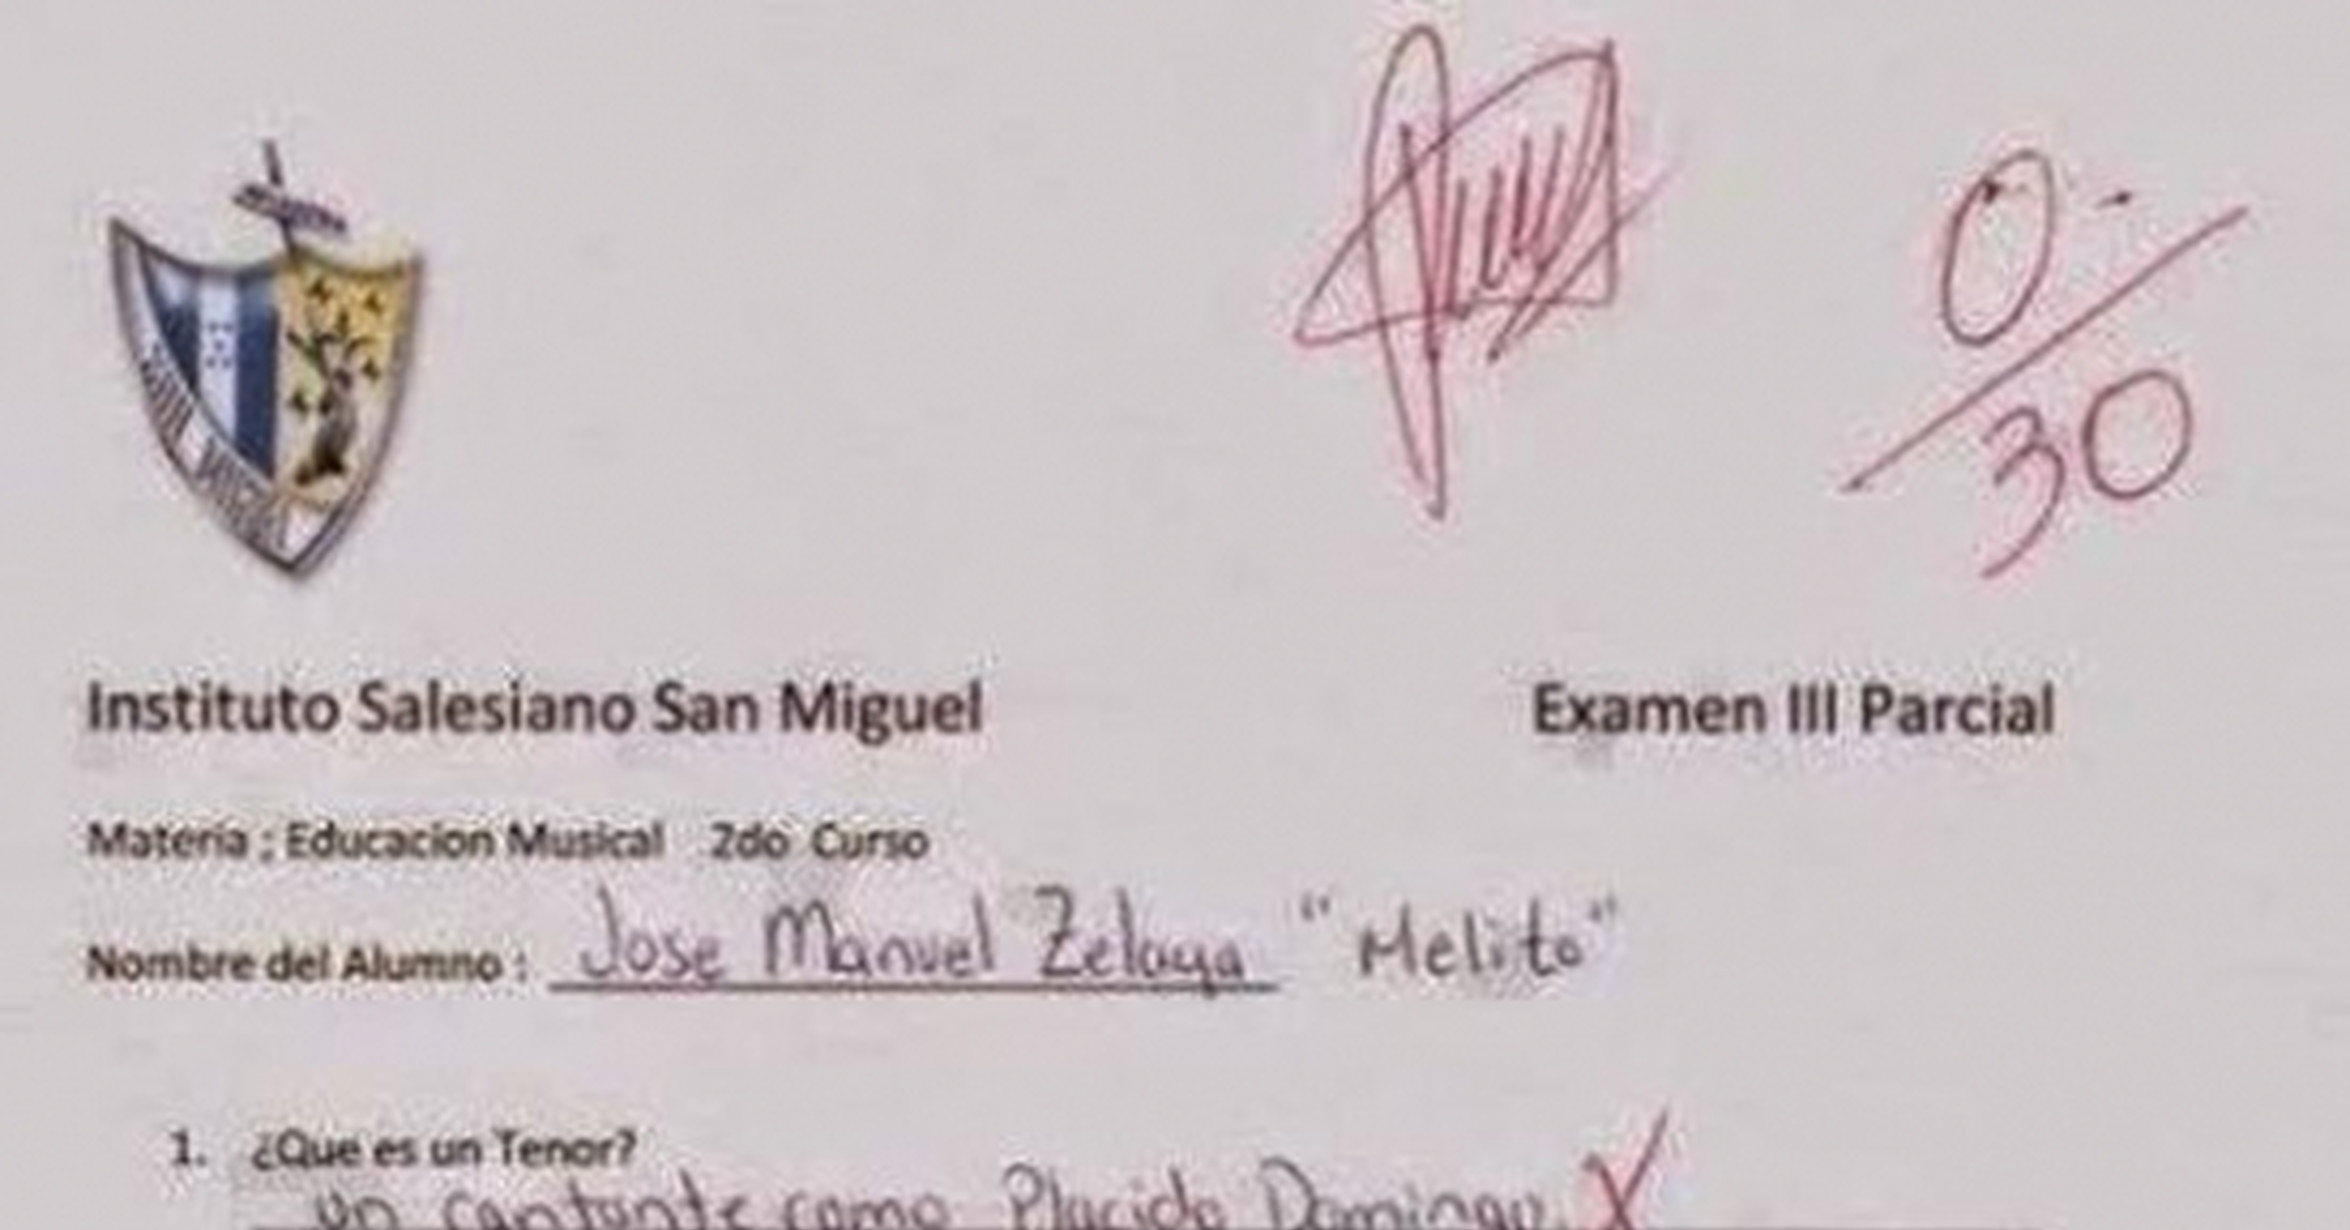 0
30
Instituto Salesiano San Miguel
Examen III Parcial
Materia ; Educacion Musical 2do Curso
Nombre del Alumno : Jose Manuel Zelaya "Melito"
1. ¿Que es un Tenor?
un cantante como Placido Domingo. X